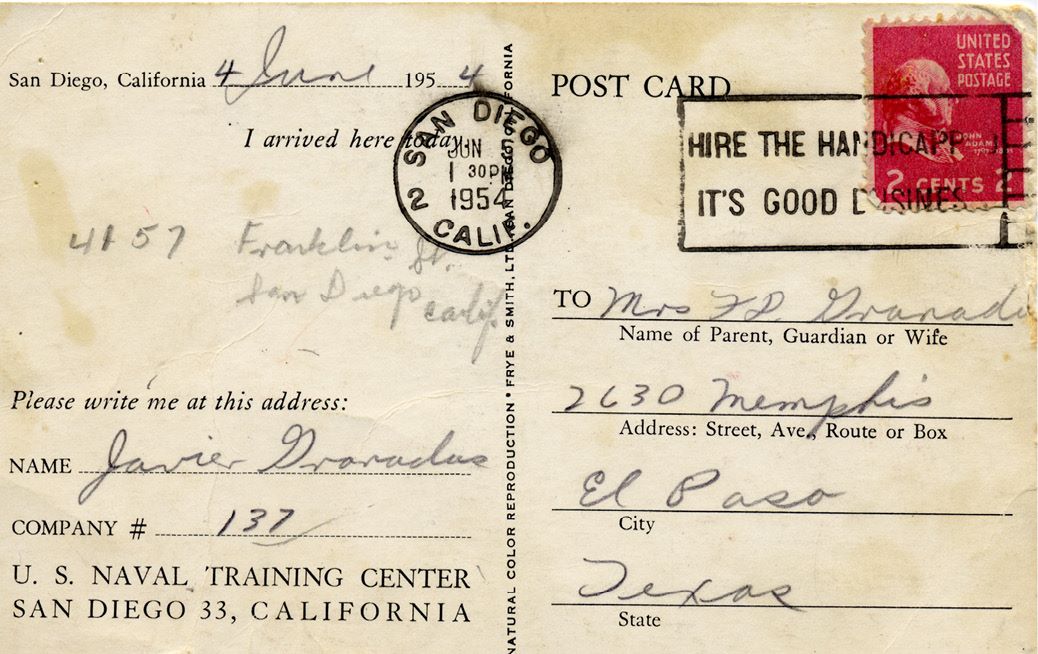 San Diego, California 4 June 1954
I arrived here today.
4157 Franklin St.
San Diego
Calif.
Please write me at this address:
NAME Javier Granados
COMPANY # 137
U. S. NAVAL TRAINING CENTER
SAN DIEGO 33, CALIFORNIA
NATURAL COLOR REPRODUCTION * FRYE & SMITH, LTD., SAN DIEGO, CALIFORNIA
SAN DIEGO
JUN
1 30PM
1954
2 CALIF.
POST CARD
UNITED
STATES
POSTAGE
JOHN
ADAMS
2 CENTS 2
HIRE THE HANDICAPP
IT'S GOOD BUSINES
TO Mrs FD Granado
Name of Parent, Guardian or Wife
2630 Memphis
Address: Street, Ave., Route or Box
El Paso
City
Texas
State